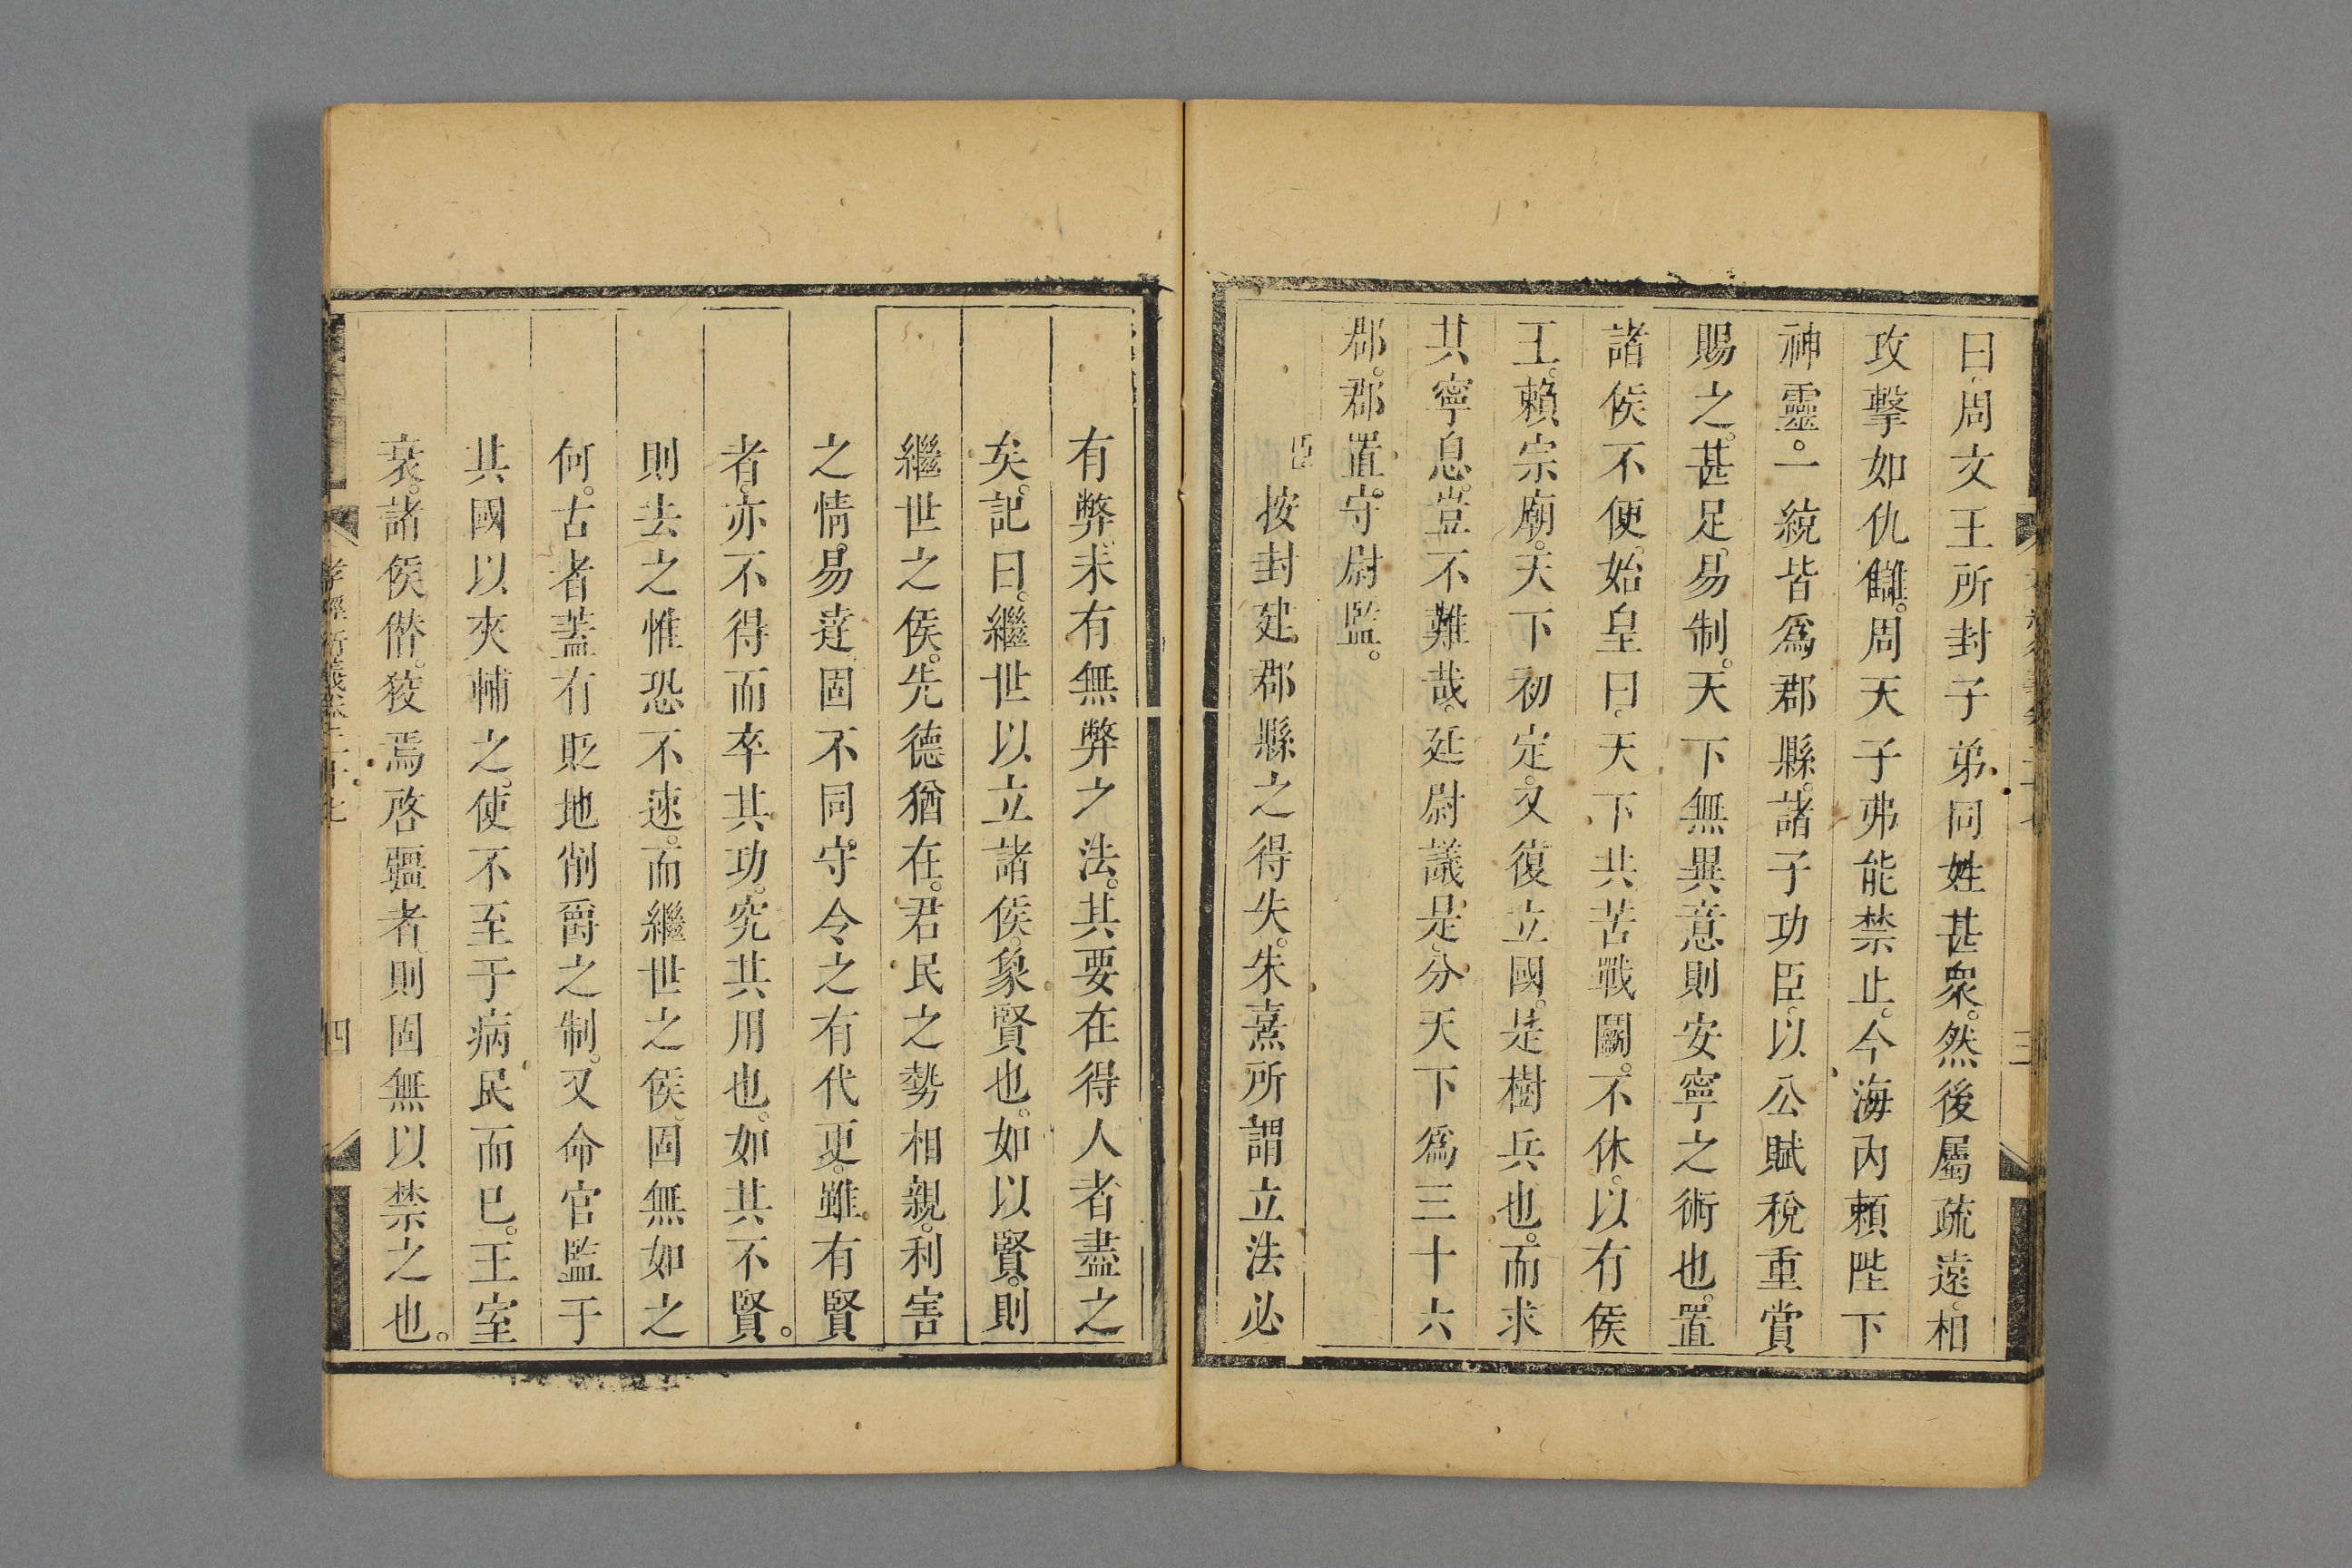 曰周文王所封子弟同姓甚衆。然後屬疏遠。相
攻擊如仇讎。周天子弗能禁止。今海內賴陛下
神靈。一統皆爲郡縣。諸子功臣。以公賦稅重賞
賜之。甚足。易制。天下無異意則安寧之術也。置
諸侯不便。始皇曰。天下共苦戰鬬。不休。以有侯
王。賴宗廟。天下初定。又復立國。是樹兵也。而求
其寧息。豈不難哉。廷尉議是。分天下爲三十六
郡。郡置。守尉監。
臣按封建郡縣之得失。朱熹所謂立法必
有弊。未有無弊之法。其要在得人者盡之
矣。記曰。繼世以立諸侯。象賢也。如以賢。則
繼世之侯。先德猶在。君民之勢相親。利害
之情。易達固不同。守令之有代更。雖有賢
者。亦不得而卒其功。究其用也。如其不賢。
則去之惟恐不速。而繼世之侯。固無如之
何。古者蓋有貶地削爵之制。又命官監于
其國以夾輔之。使不至于病民而已。王室
衰。諸侯僭。狡焉啓疆者。則固無以禁之也。
孝經衍義卷二十七
四
三